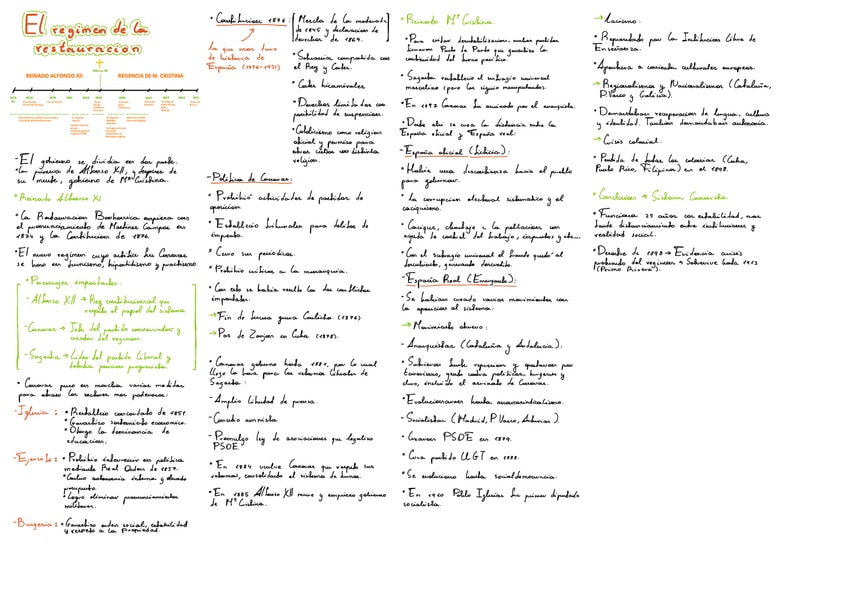 El regimen de la
restauracion
REINADO ALFONSO XII
REGENCIA DE M. CRISTINA
-El gobierno se dividia en dos parte:
•La primera de Alfonso XII, y despues de
su muerte, gobierno de Mª Cristina.
•Reinado Alfonso XI
•La Restauracion Borbonica empieza con
el pronunciamiento de Martinez Campos en
1874 y la Constitucion de 1876.
•El nuevo regimen cuyo artifice fue Canovas
se baso en turnismo, bipartidismo y
•Personajes importantes:
-Alfonso XII → Rey constitucional que
respeto el papel del sistema
-Canovas → Jefe del partido conservador y
creador del regimen.
-Sagasta → Lider del partido liberal y
progresista.
•Canovas puso en marcha varias medidas
para atraer los sectores mas poderosos.
-Iglesia: •Restablecio concordato de 1851.
•Garantizo sostenimiento economico.
•Otorgo la dominancia de
educacion.
-Ejercito: •Prohibio intervenir en politica
mediante Real Orden de 1875.
autonomia interna y elevado
presupuesto
•Logro eliminar pronunciamientos
militares.
-Burguesia: •Garantizo orden social, estabilidad
y respeto a la propiedad.
•Constitucion 1876:
La que mas duro
de historia de
España (1876-1931)
Mezcla de la moderada
de 1845 y declaracion de
derechos de 1869.
•Soberania compartida con
el Rey y Cortes.
•Cortes bicamerales
•Derechos limitados con
posibilidad de suspension.
•Catolicismo como religion
oficial y permiso para
otros cultos con distinta
religion.
-Politica de Canovas:
•Prohibio actividades de partidos de
oposicion
•Establecio tribunales para delitos de
imprenta.
•Cerro sus periodicos.
•Prohibio criticas a la monarquia.
•Con esto se habia resuelto los dos conflictos
importantes:
→Fin de tercera guerra Carlista (1876)
→Paz de Zanjon en Cuba (1878).
•Canovas goberno hasta 1881, por lo cual
llego la hora para las reformas liberales de
Sagasta:
-Amplio libertad de prensa.
-Concedio amnistia
-Promulgo ley de asociaciones que legalizo
PSOE
•En 1884 vuelve Canovas que respeto sus
reformas, consolidando el sistema de turnos.
•En 1885 Alfonso XII muere y empieza gobierno
de Mª Cristina.
•Reinado Mª Cristina
•Para evitar desestabilizacion, ambos partidos
firmaron Pacto de Pardo que garantiza la
continuidad del turno pacifico.
•Sagasta restablecio el sufragio universal
masculino (pero les siguio manipulando).
•En 1897 Canovas fue asesinado por el anarquista.
•Debe ello se crea la distancia entre la
España oficial y España real:
-España oficial (ficticia):
•Habia una desconfianza hacia el pueblo
para gobernar.
•La corrupcion electoral sistematica y el
caciquismo.
•Caciques, chantaje a la poblacion con
ayuda de control del trabajo, impuestos y etc...
•Con el sufragio universal el fraude quedo al
descubierto, generando descredito.
-España Real (Emergente):
•Se habian creado varios movimientos con
la oposicion al sistema:
→Movimiento obrero:
-Anarquistas (Cataluña y Andalucia):
•Sufrieron fuerte represion y apostaron por
terrorismo, yendo contra politicos, burgueses y
clero, incluido el asesinato de Canovas.
•Evolucionaron hasta anarcosindicalismo.
-Socialistas (Madrid, P. Vasco, Asturias).
•Crearon PSOE en 1879.
•Crea partido UGT en 1888.
•Se evoluciono hasta socialdemocracia.
•En 1910 Pablo Iglesias fue primer diputado
socialista.
→Laicismo:
•Representado por la Institucion Libre de
Enseñanza.
a corrientes culturales europeas.
→Regionalismos y Nacionalismos (Cataluña,
P. Vasco y Galicia).
•Demandaban recuperacion de lengua, cultura
y identidad. Tambien demandaban autonomia.
→Crisis colonial:
•Perdida de todas las colonias (Cuba,
Puerto Rico, Filipinas) en el 1898.
•Conclusion → Sistema Canovista
•Funciona 25 años con estabilidad, mas
tarde distanciamiento entre instituciones y
realidad social.
•Desastre de 1898 → Evidencia crisis
profunda del regimen • Sobrevive hasta 1923
(Primo Rivera).